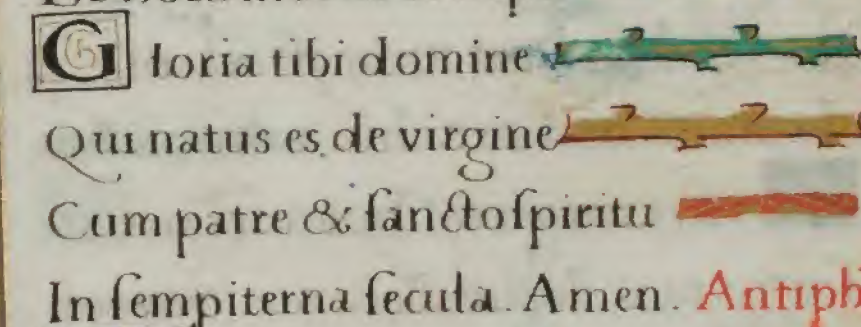 Gloria tibi domine
Qui natus es de virgine
Cum patre & ſancto ſpiritu
In ſempiterna ſecula. Amen. Antiph